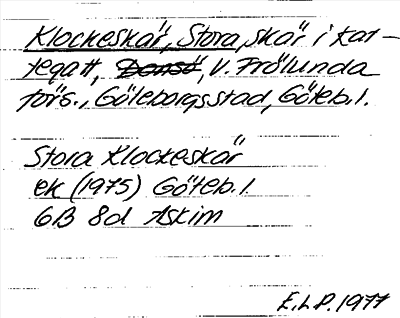 Klockeskär, Stora, skär i Kat-
tegatt, Donsö, V. Frölunda
förs., Göteborgs stad, Göteb. l.
Stora Klockeskär
ek (1975) Göteb. l.
6B 8d Askim
E.L.P. 1977